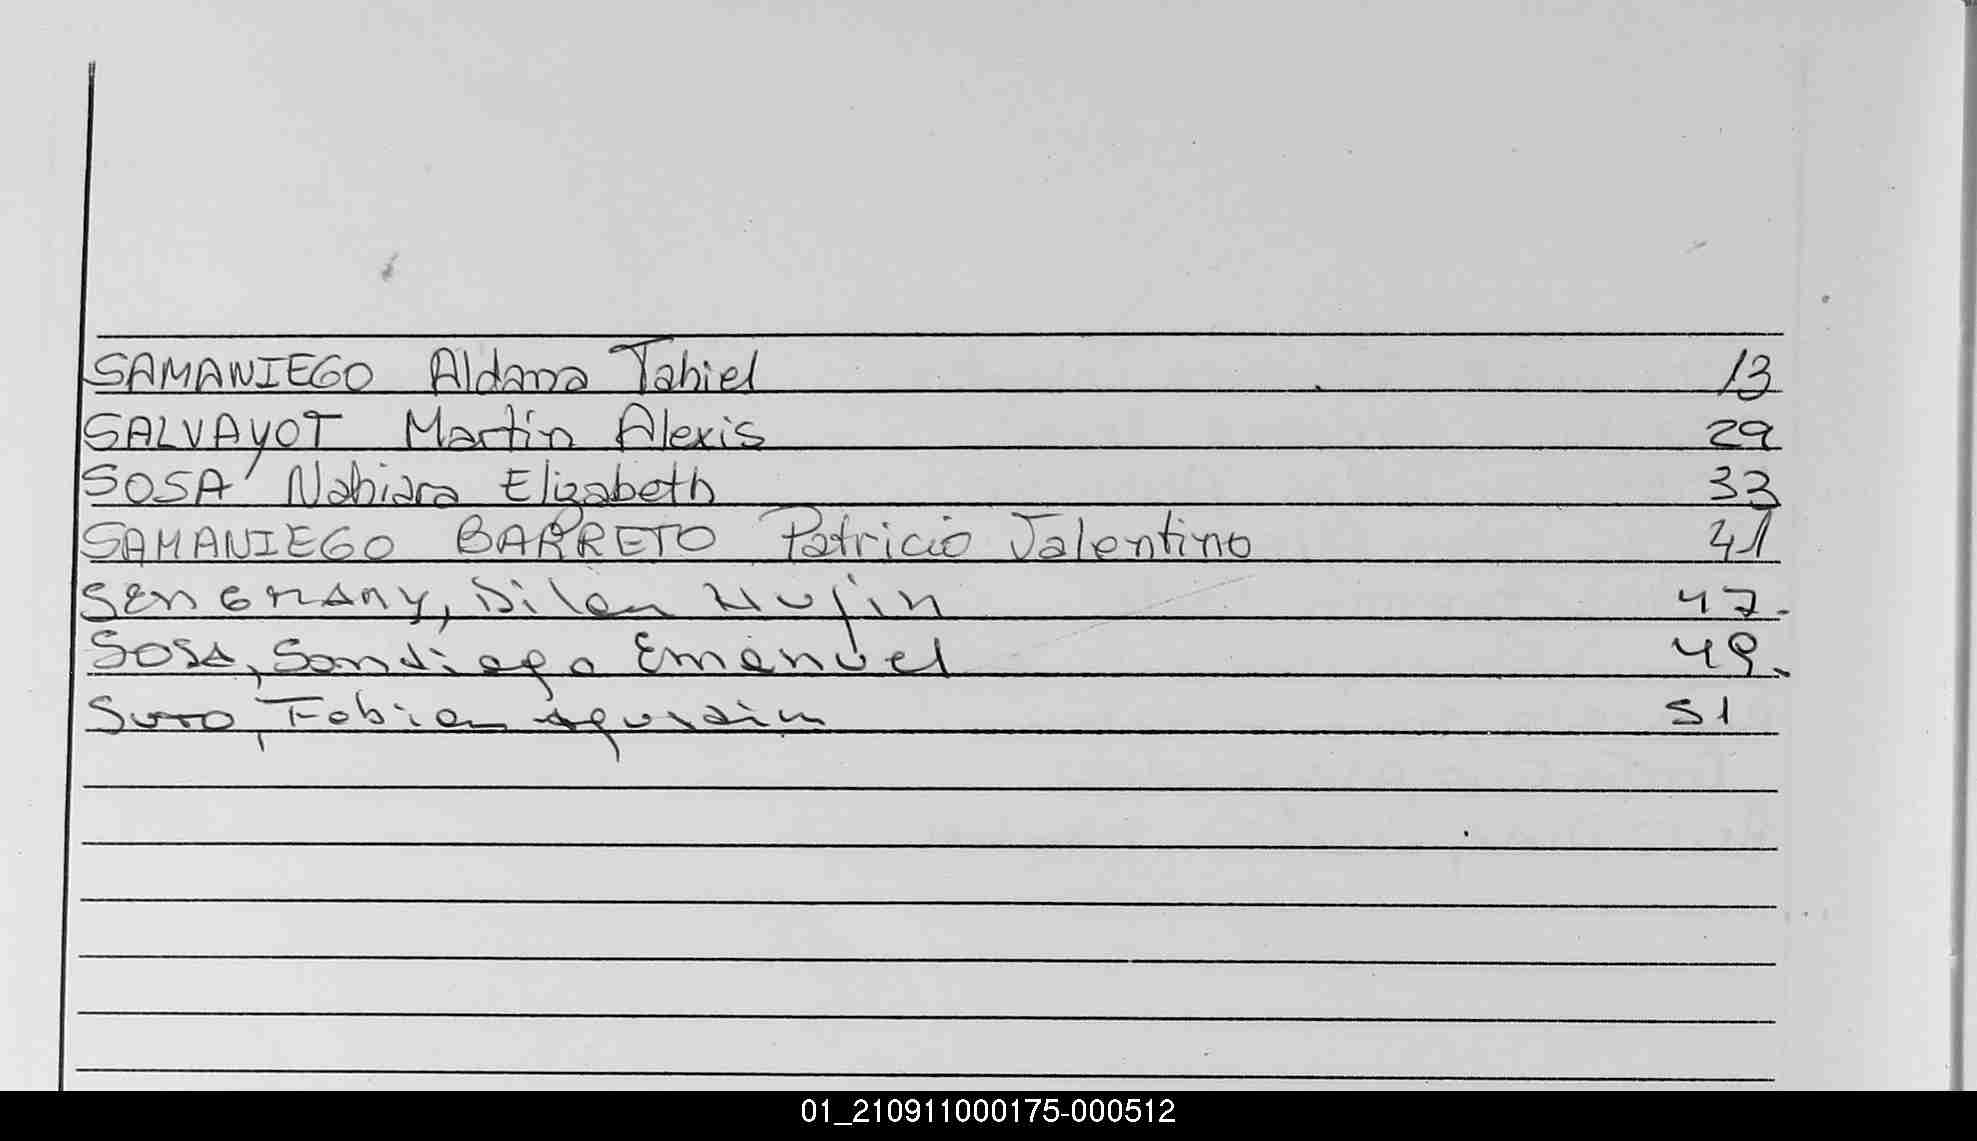 SAMANIEGO Aldana Tahiel 13
SALVAYOT Martín Alexis 29
SOSA Nahiara Elizabeth 33
SAMANIEGO BARRETO Patricio Valentino 41
Dilan 47.
Sosa, Santiago Emanuel 49.
Suto, Fabian Agustin 51
01_210911000175-000512